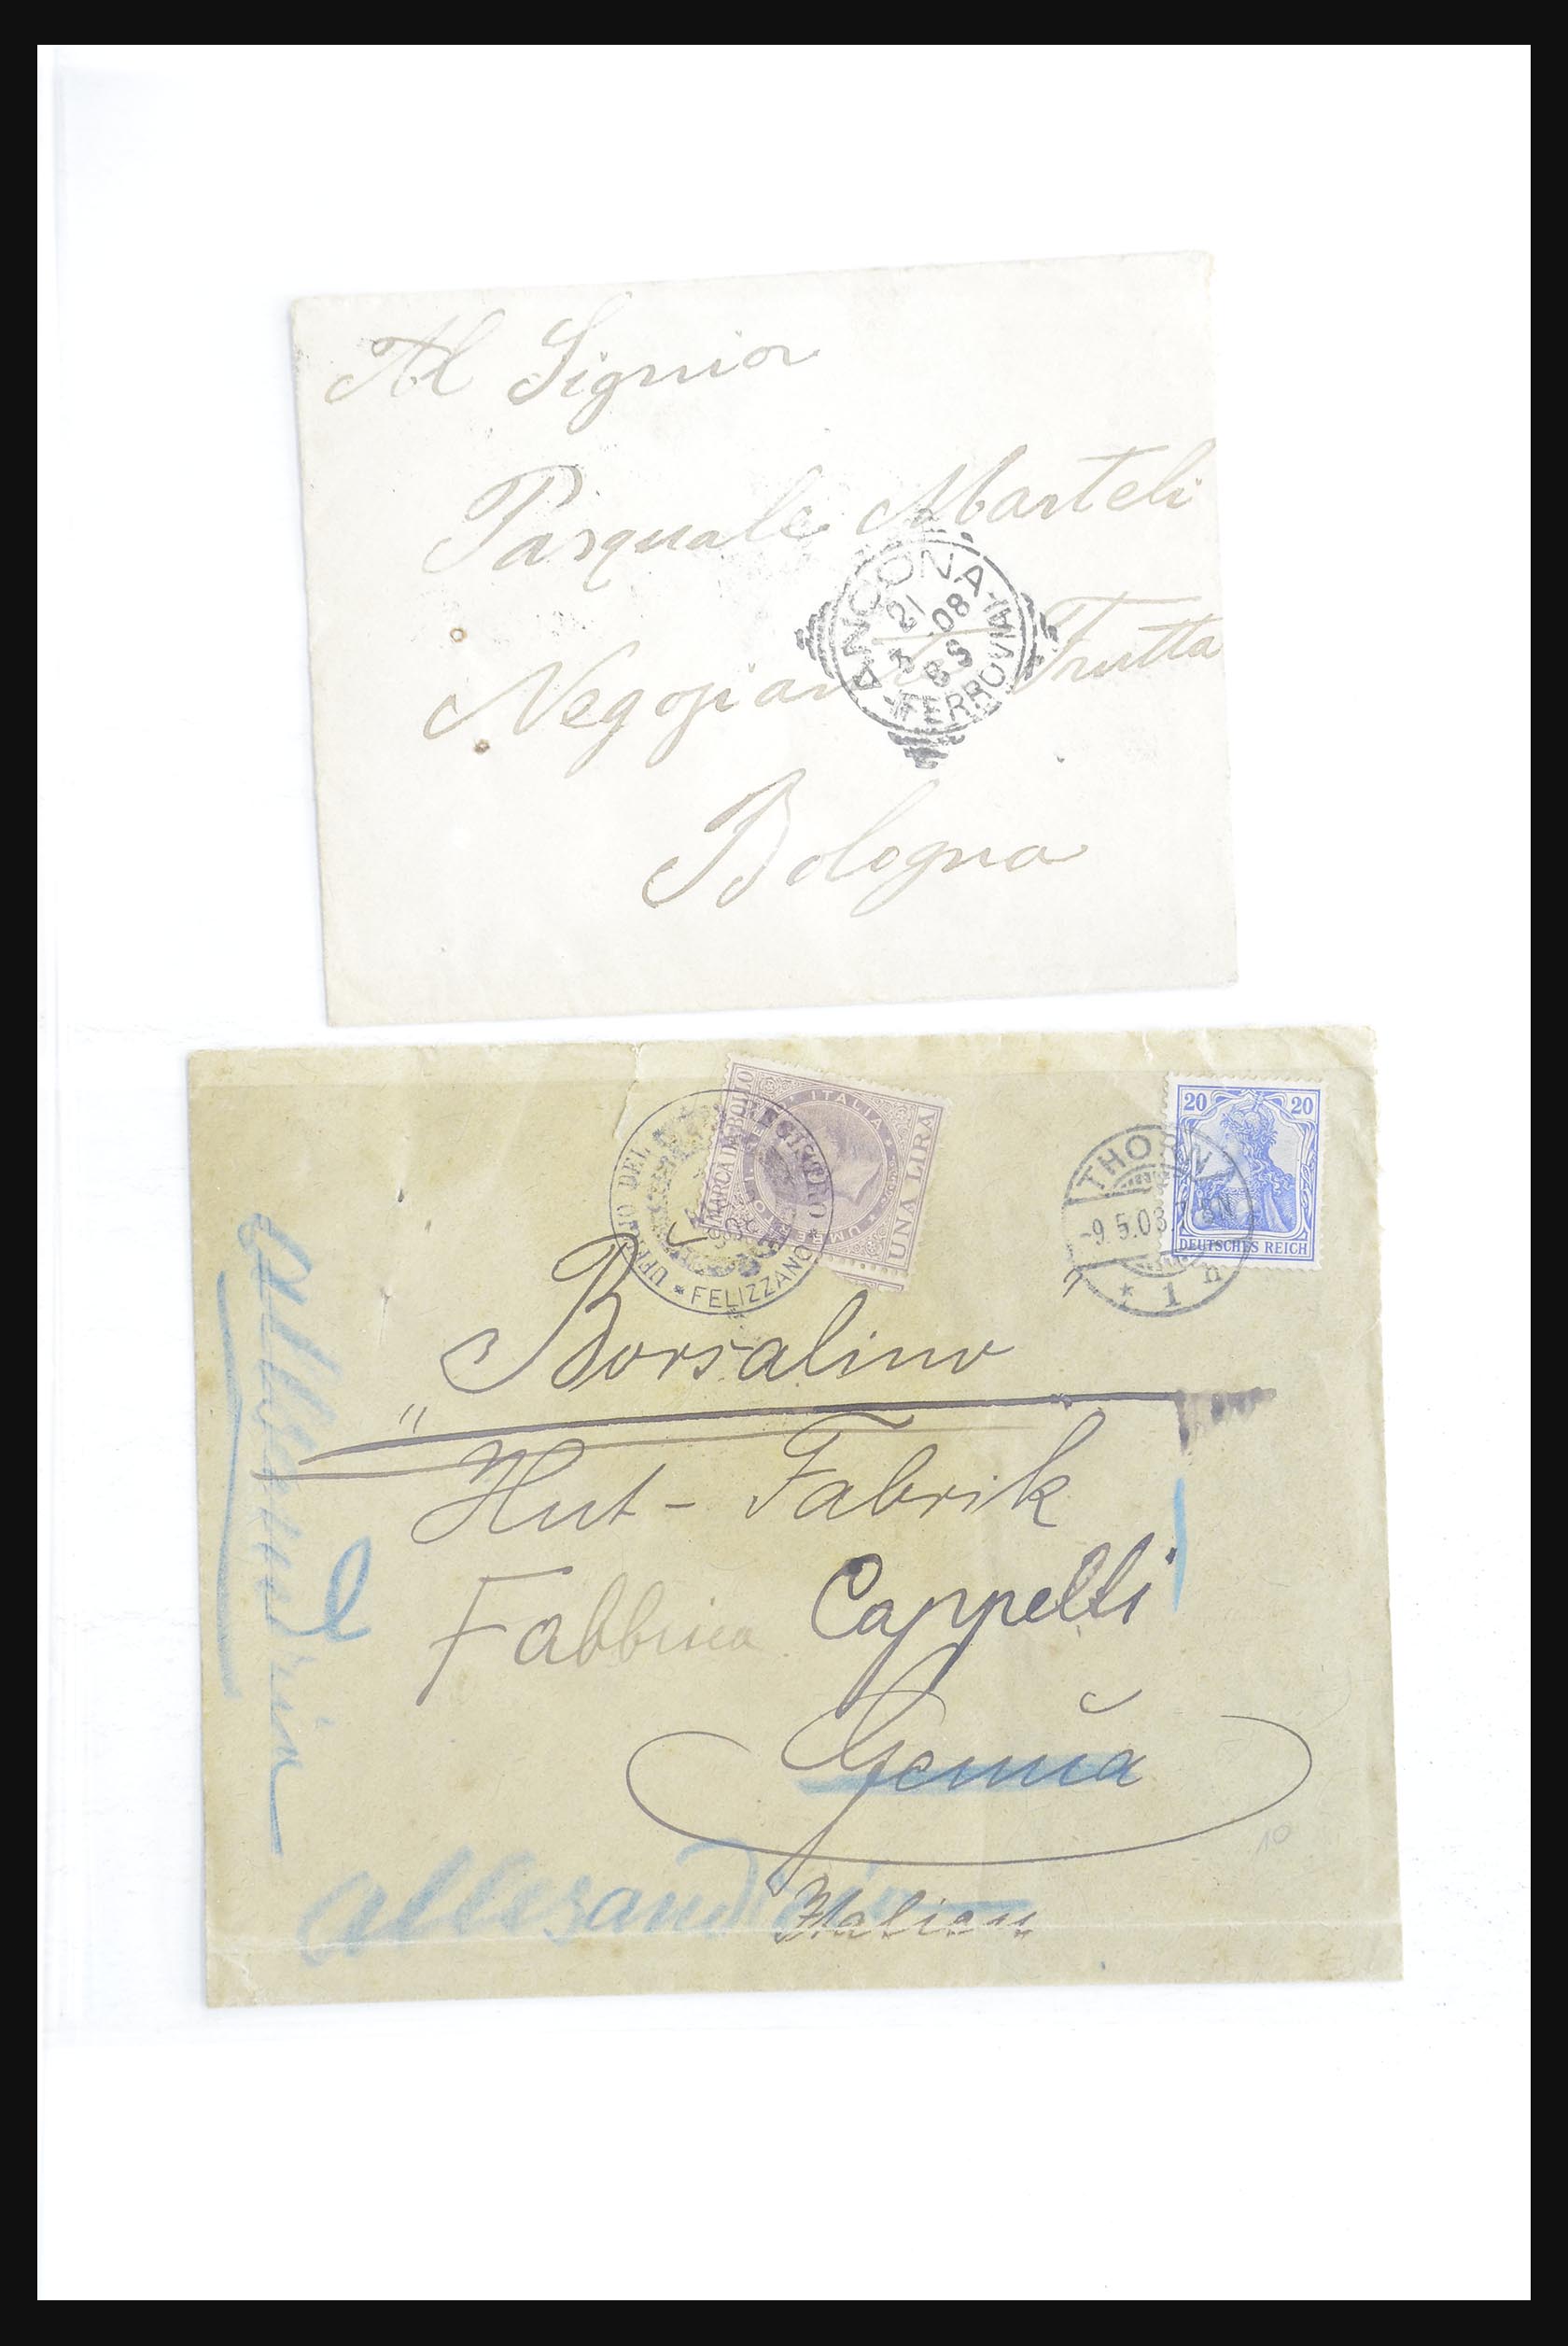 Al Signior
Pasquale Marteli
Negoziante Frutta
Bologna
ANCONA
21
08
8 S
FERROVIA
ITALIA
MARCA DA BOLLO
UNA LIRA
UFFICIO DEL REGISTRO
* FELIZZANO *
20 20
DEUTSCHES REICH
THORN
-9.5.03
* 1 h
Borsalino
" Hut - Fabrik "
Fabbrica Cappelli
Genŭa
Italien
Allesandria
allesandria
10